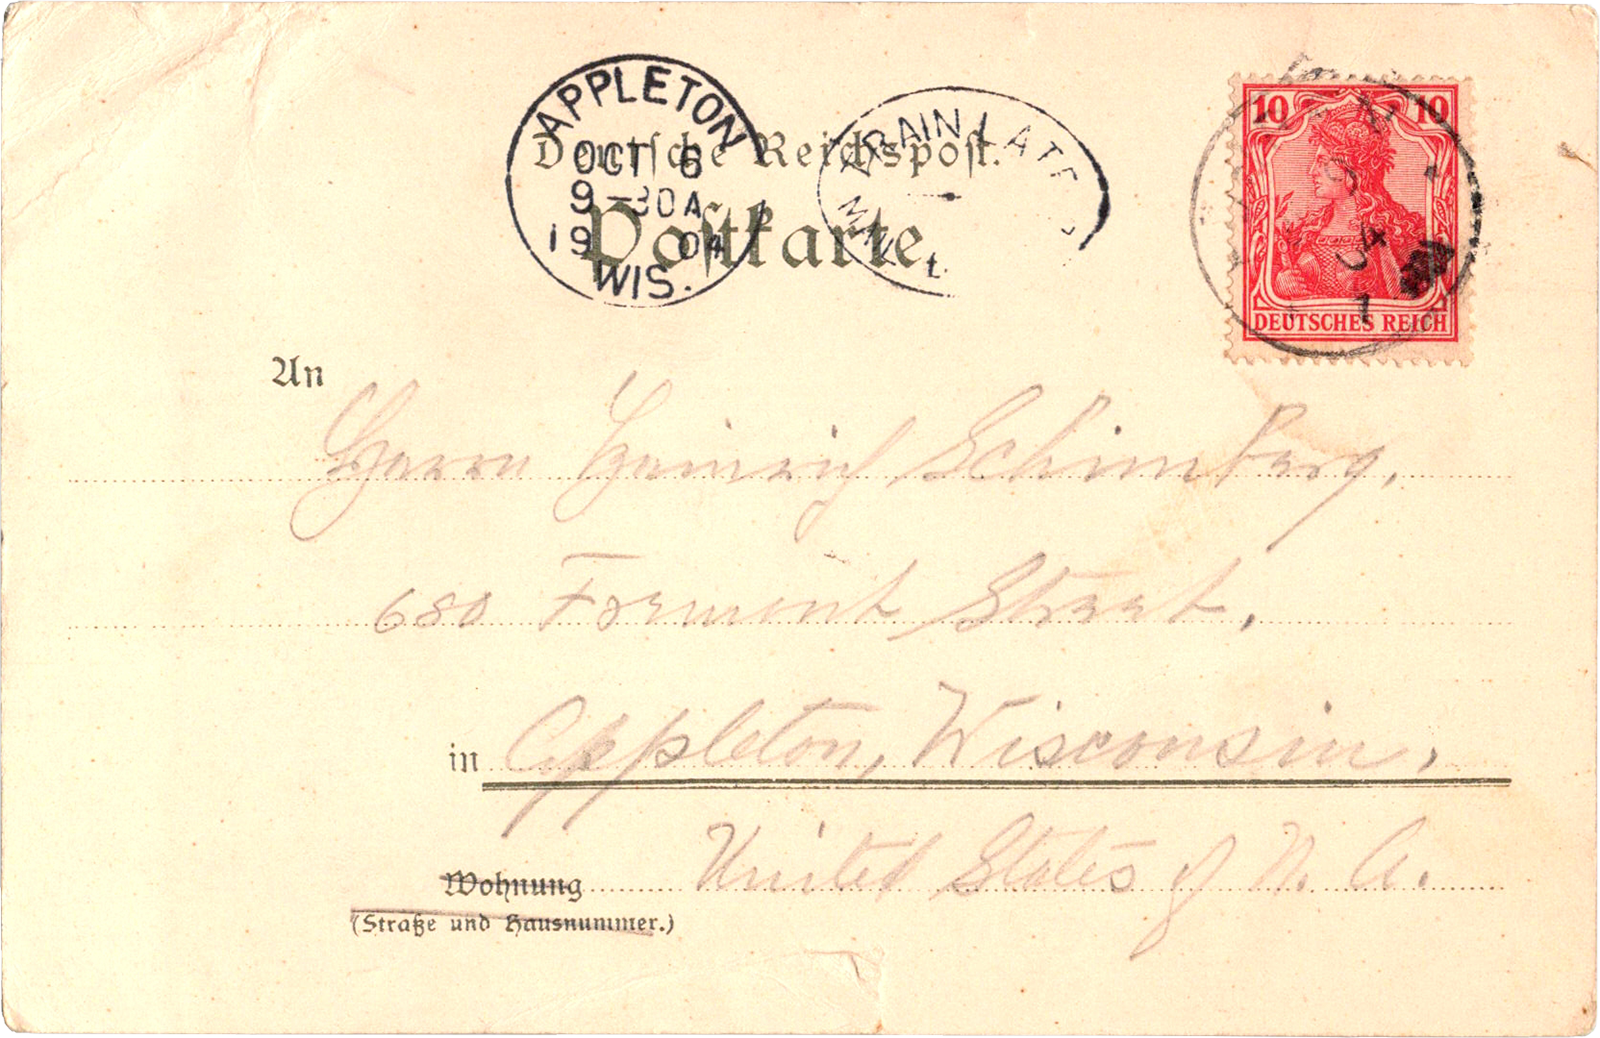 APPLETON
OCT 6
9-30A
1904
WIS.
TRAIN LATE
10 10
DEUTSCHES REICH
Deutsche Reichspost.
Postkarte
An
Herrn Heinrich Schimberg,
680 Fremont Street,
in Appleton, Wisconsin,
United States of N. A.
Wohnung
(Straße und Hausnummer.)